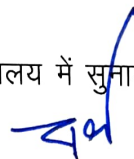 लय में सुना